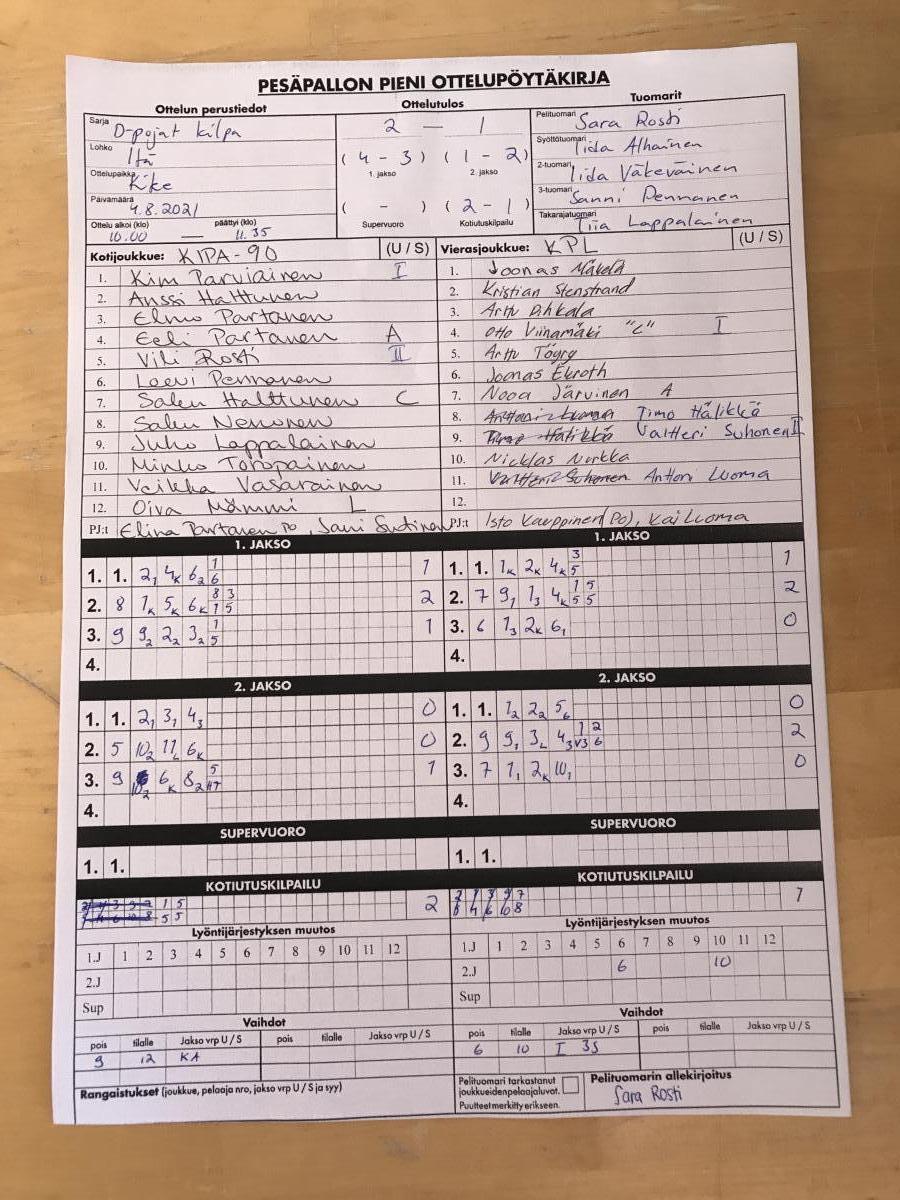 PESÄPALLON PIENI OTTELUPÖYTÄKIRJA
Ottelun perustiedot
Sarja D-pojat kilpa
Lohko Itä
Ottelupaikka Kike
Päivämäärä 4.8.2021
Ottelu alkoi (klo) päättyi (klo)
10.00 — 11.35
Ottelutulos
2 — 1
( 4 - 3 ) ( 1 - 2 )
1. jakso 2. jakso
( - ) ( 2 - 1 )
Supervuoro Kotiutuskilpailu
Tuomarit
Pelituomari Sara Rosti
Syöttötuomari Iida Alhainen
2-tuomari Iida Väkeväinen
3-tuomari Sanni Pennanen
Takarajatuomari Tiia Lappalainen
Kotijoukkue: KIPA-90 (U / S)
1. Kim Parviainen I
2. Anssi Halttunen
3. Elmo Partanen
4. Eeli Partanen A
5. Vili Rosti II
6. Leevi Pennanen
7. Salen Halttunen C
8. Salen Nenonen
9. Juho Lappalainen
10. Minko Toropainen
11. Veikka Vasarainen
12. Oiva Mömmi L
PJ:t Elina Partanen PO, Jani Sutinen
Vierasjoukkue: KPL (U / S)
1. Joonas Mäkelä
2. Kristian Stenstrand
3. Arttu Pihkala
4. Otto Viinamäki "C" I
5. Arttu Töyry
6. Joonas Ekroth
7. Nooa Järvinen A
8. Timo Hälikkä
9. Timo Hälikkä Valtteri Suhonen II
10. Nicklas Nurkka
11. Valtteri Suhonen Anttoni Luoma
12.
PJ:t Isto Kauppinen (PO), Kai Luoma
1. JAKSO
1. 1. 2₁ 4ₖ 6₂ 1 6 1
2. 8 1ₖ 5ₖ 6ₖ 8 3 1 5 2
3. 9 9₂ 2₂ 3₂ 1 5 1
4.
1. JAKSO
1. 1. 1ₖ 2ₖ 4ₖ 3 5 1
2. 7 9₁ 1₃ 4ₖ 1 5 5 5 2
3. 6 1₃ 2ₖ 6₁ 0
4.
2. JAKSO
1. 1. 2₁ 3₁ 4₃ 0
2. 5 10₂ 11L 6ₖ 0
3. 9 10₂ 6ₖ 8₂ 5 1
4.
2. JAKSO
1. 1. 1₂ 2₂ 5₆ 0
2. 9 9₁ 3L 4₃ 1 2 V3 6 2
3. 7 1₁ 2ₖ 10₁ 0
4.
SUPERVUORO
1. 1.
SUPERVUORO
1. 1.
KOTIUTUSKILPAILU
1 5
5 5
2
KOTIUTUSKILPAILU
1
Lyöntijärjestyksen muutos
1.J 1 2 3 4 5 6 7 8 9 10 11 12
2.J
Sup
Lyöntijärjestyksen muutos
1.J 1 2 3 4 5 6 7 8 9 10 11 12
2.J 6 10
Sup
Vaihdot
pois tilalle Jakso vrp U / S pois tilalle Jakso vrp U / S
9 12 KA
Vaihdot
pois tilalle Jakso vrp U / S pois tilalle Jakso vrp U / S
6 10 I 3S
Rangaistukset (joukkue, pelaaja nro, jakso vrp U / S ja syy)
Pelituomari tarkastanut
joukkueiden pelaajaluvat.
Puutteet merkitty erikseen.
Pelituomarin allekirjoitus
Sara Rosti